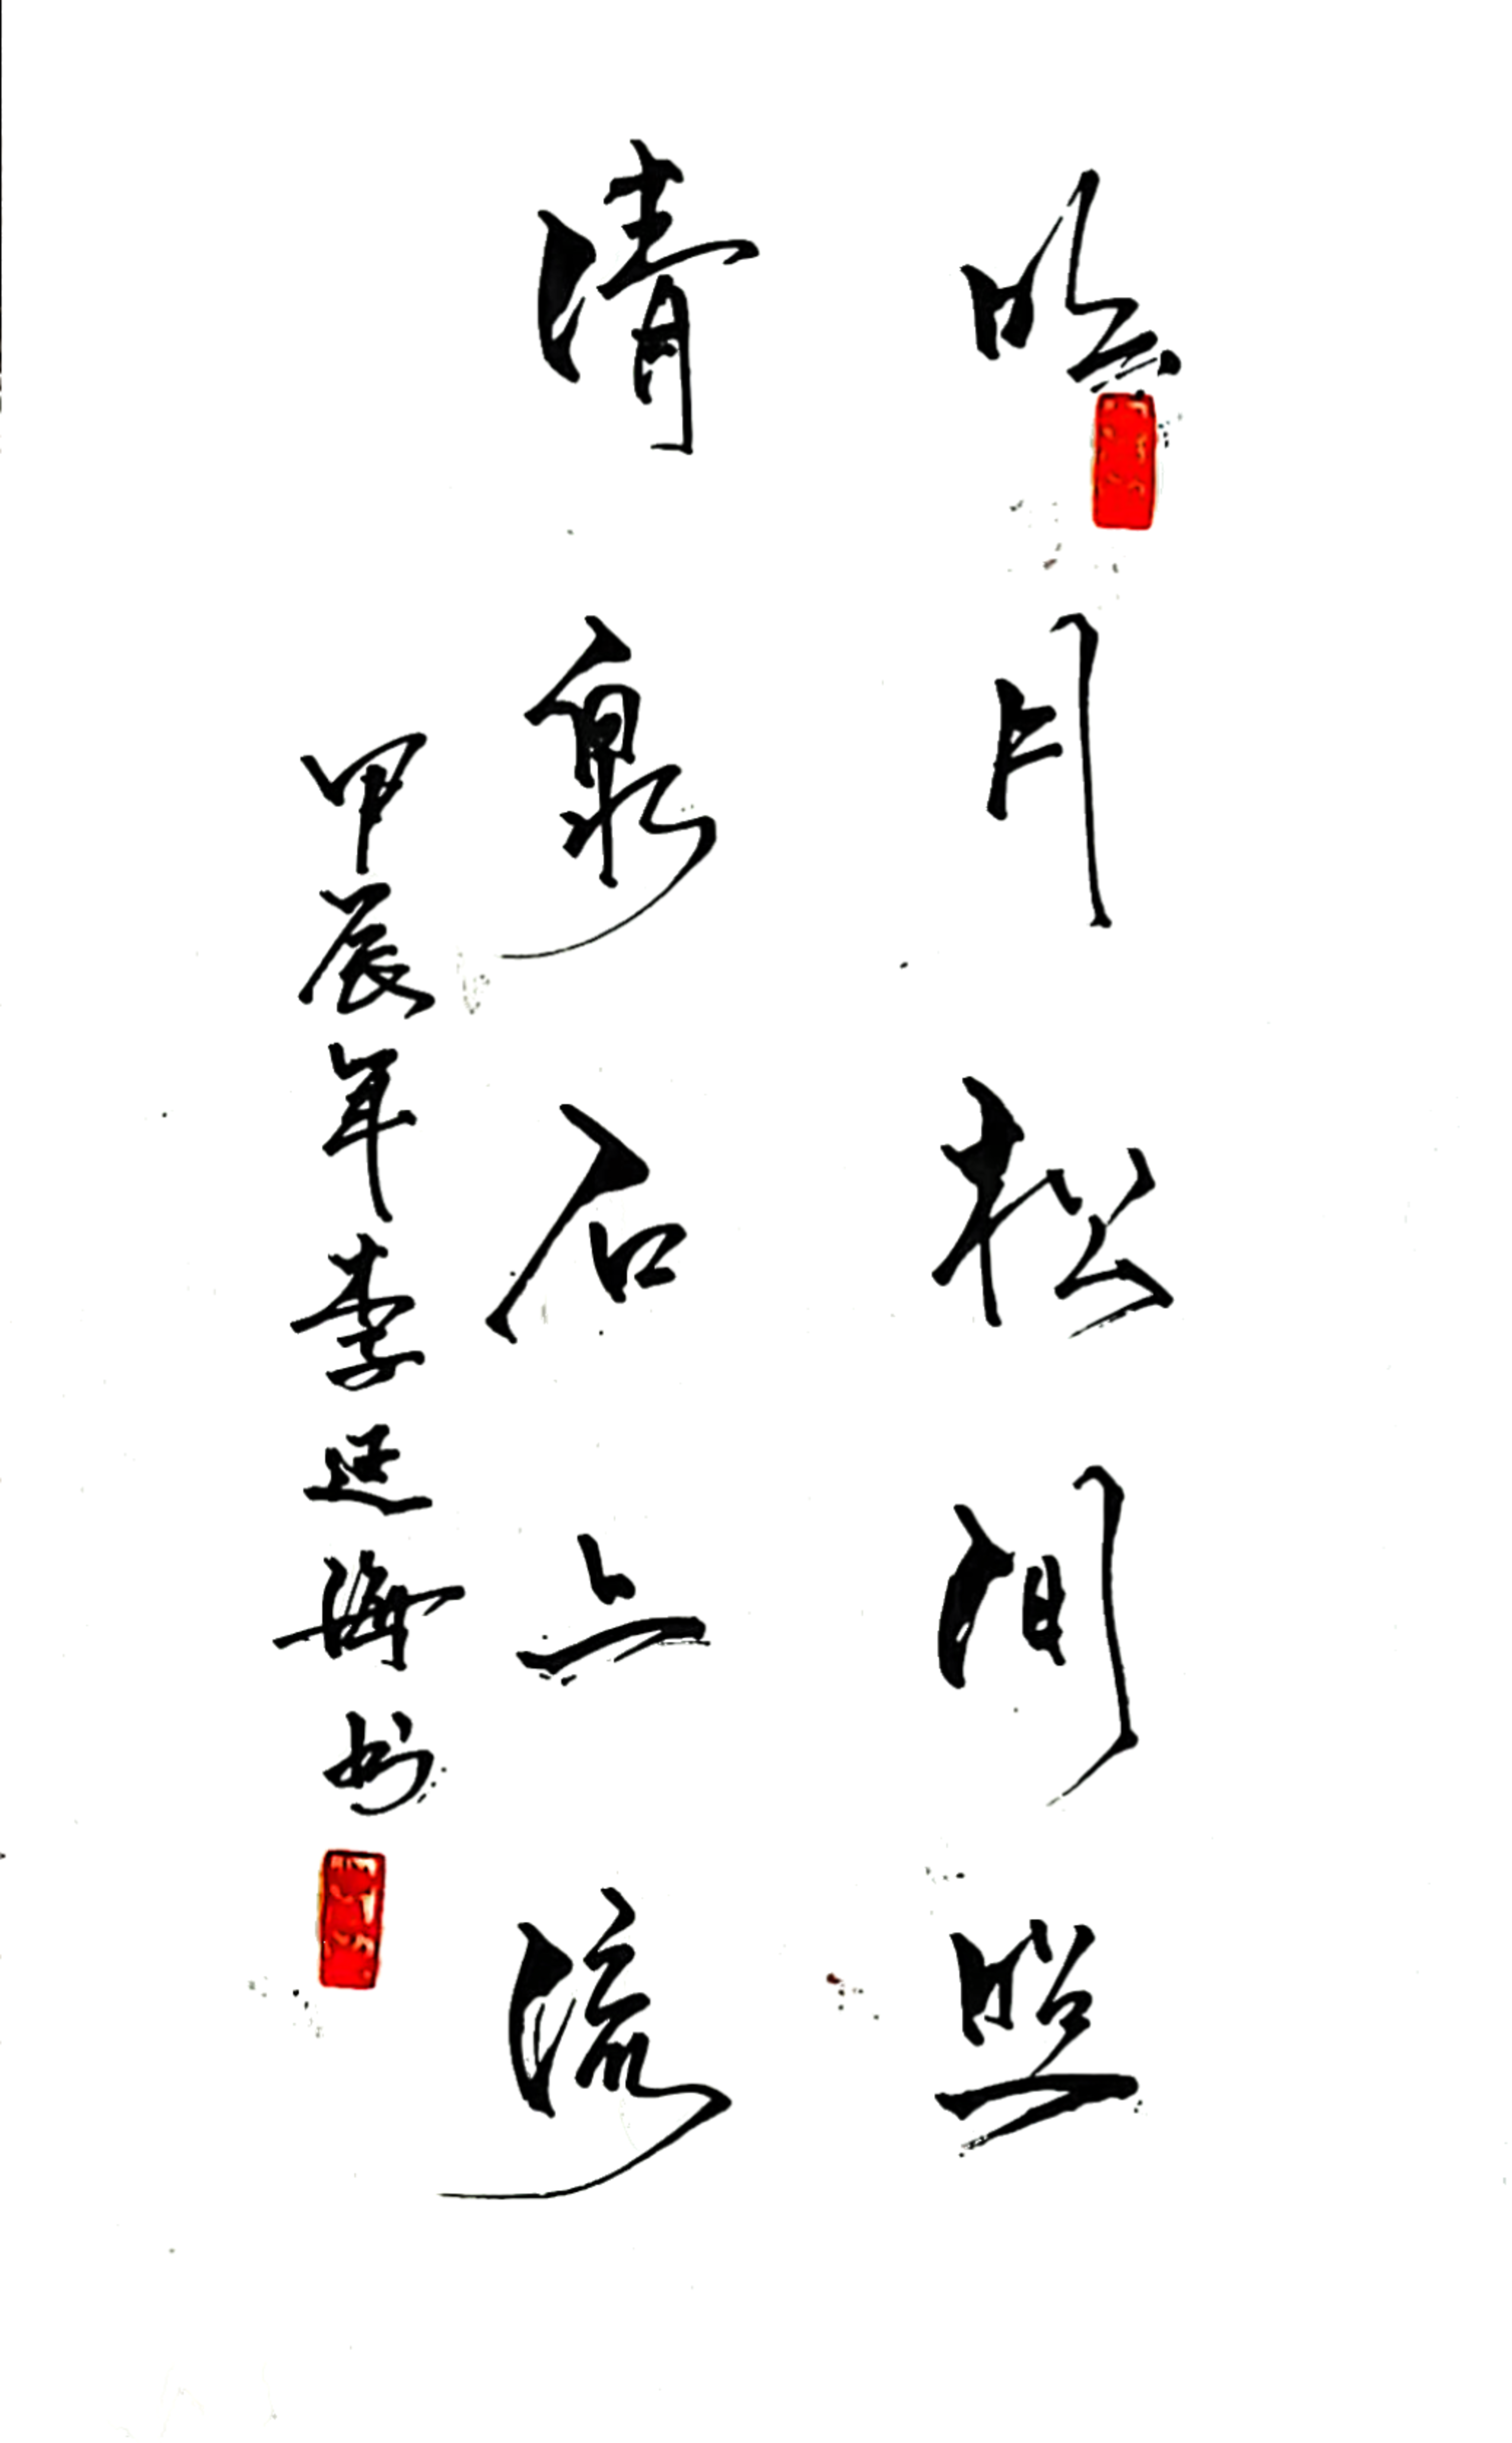 明月松间照
清泉石上流
甲辰年李延海书